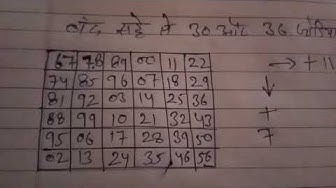 30 और 36
67 78 89 00 11 22 → +11
74 85 96 07 18 29 ↓
81 92 03 14 25 36
88 99 10 21 32 43 +
95 06 17 28 39 50 7
02 13 24 35 46 56